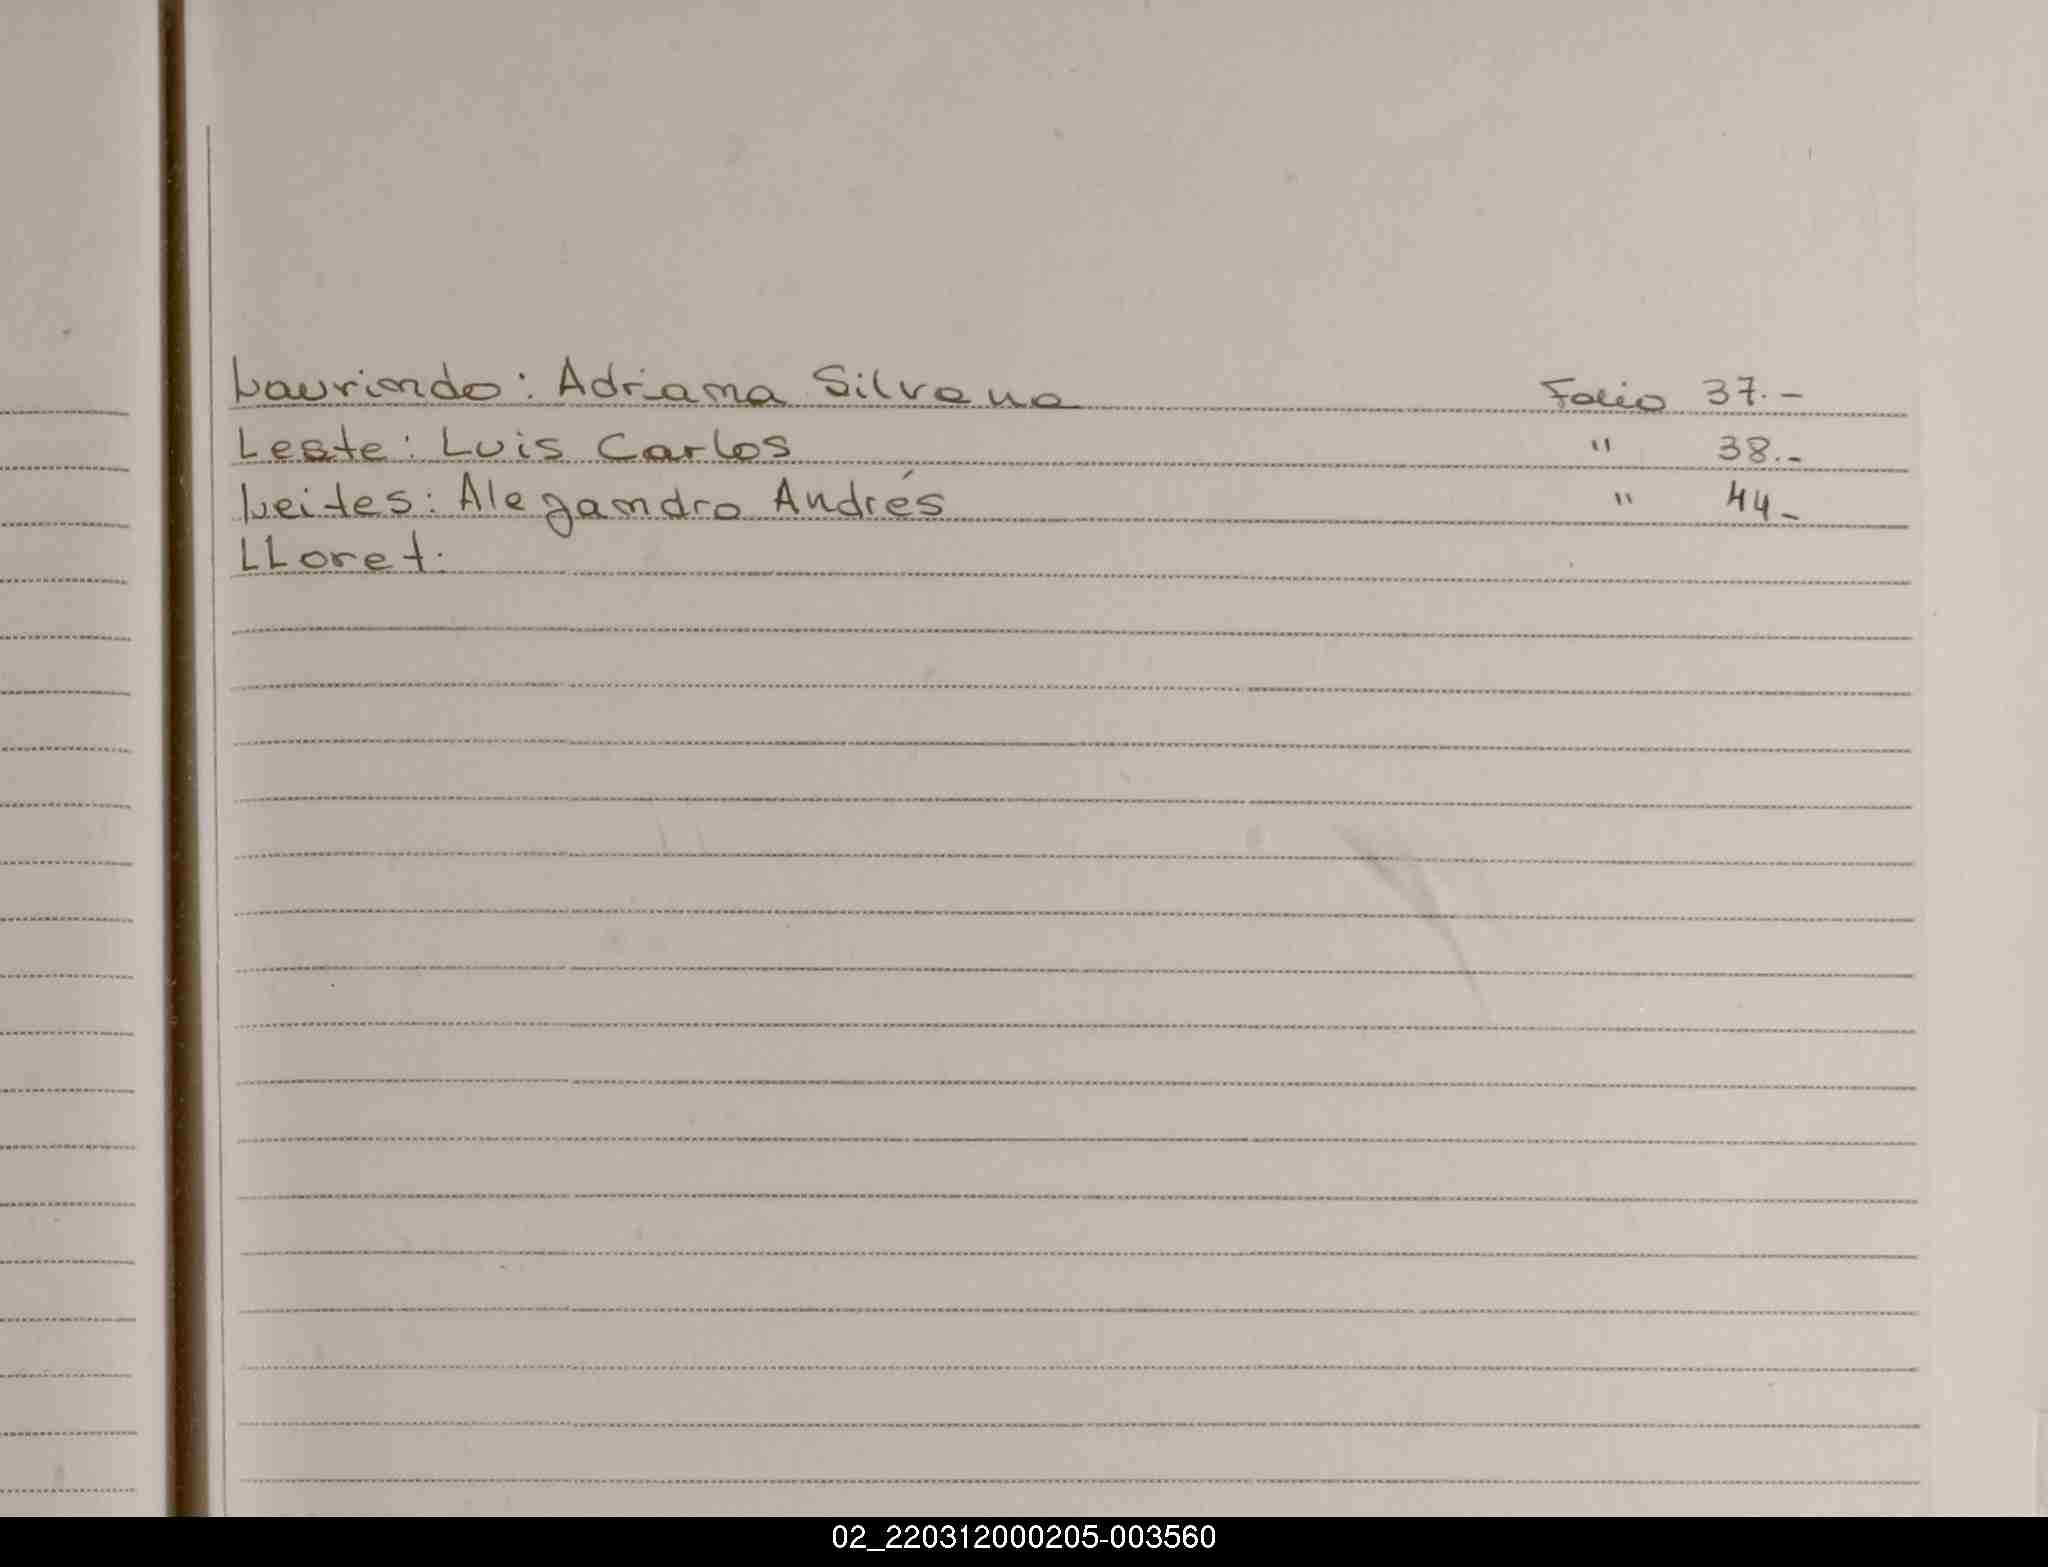 Laurindo: Adriana Silvana Folio 37.-
Leste: Luis Carlos " 38.-
Leites: Alejandro Andrés " 44-
LLoret.
02_220312000205-003560